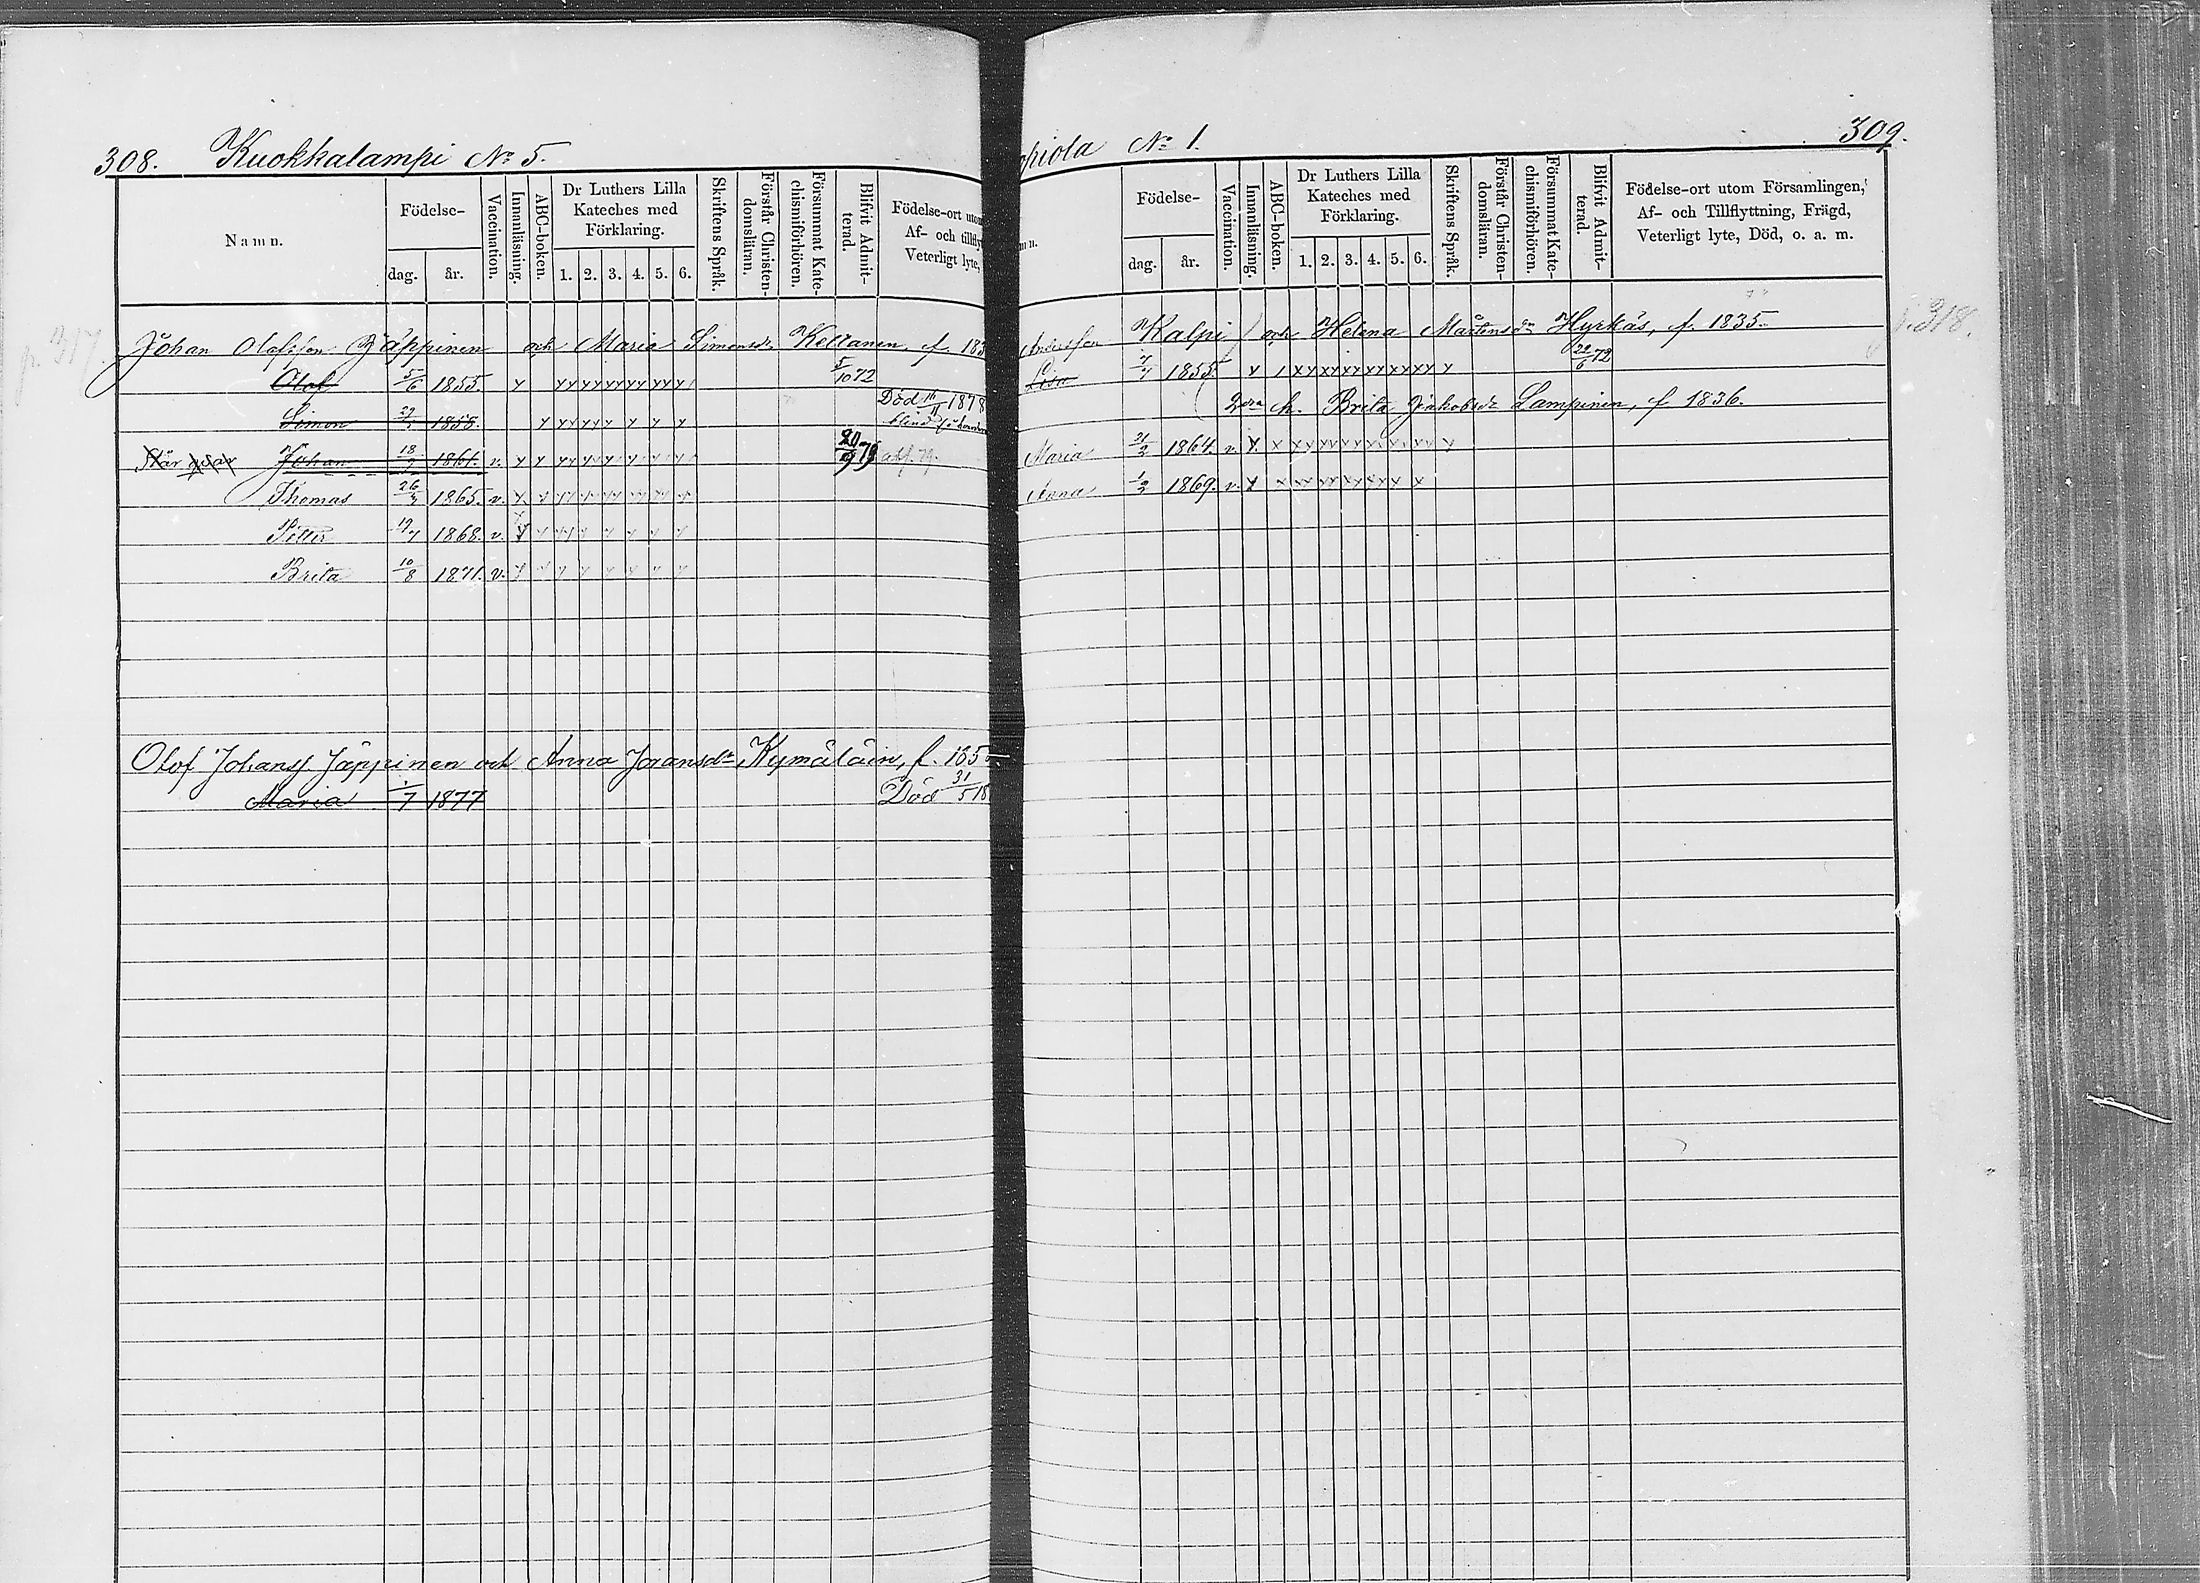 308. Kuokkalampi No 5.
Namn.
Födelse-
dag. år.
Vaccination.
Innanläsning.
ABC-boken.
Dr Luthers Lilla Kateches med Förklaring.
1. 2. 3. 4. 5. 6.
Skriftens Språk.
Förstår Christen-domsläran.
Försummat Kate-chismiförhören.
Blifvit Admit-terad.
Födelse-ort utom
Af- och tillfly
Veterligt lyte,
p. 317.
Johan Olofsson Jäppinen och Maria Simonsdr Keltanen, f. 183
Olof 5/6 1855. 5/10 72
Simon 1858. Död 1878 blind
Johan 18/9 1861. v. 20/9 79
Thomas 26/4 1865. v.
Petter 19/4 1868. v.
Brita 10/8 1871. v.
Olof Johanss. Jäppinen och Anna Joransdr Kymäläin, f. 185
Maria 1/7 1877 Död 31/5 18
opiola No 1. 309.
n.
Födelse-
dag. år.
Vaccination.
Innanläsning.
ABC-boken.
Dr Luthers Lilla Kateches med Förklaring.
1. 2. 3. 4. 5. 6.
Skriftens Språk.
Förstår Christen-domsläran.
Försummat Kate-chismiförhören.
Blifvit Admit-terad.
Födelse-ort utom Församlingen,
Af- och Tillflyttning, Frägd,
Veterligt lyte, Död, o. a. m.
p. 318.
Andersson Kalpi och Helena Mårtensdr Hyrkäs, f. 1835.
Lisa 1855 22/6 72
2dra h. Brita Jakobsdr Lampinen, f. 1836.
Maria 21/2 1864. v.
Anna 1/2 1869. v.